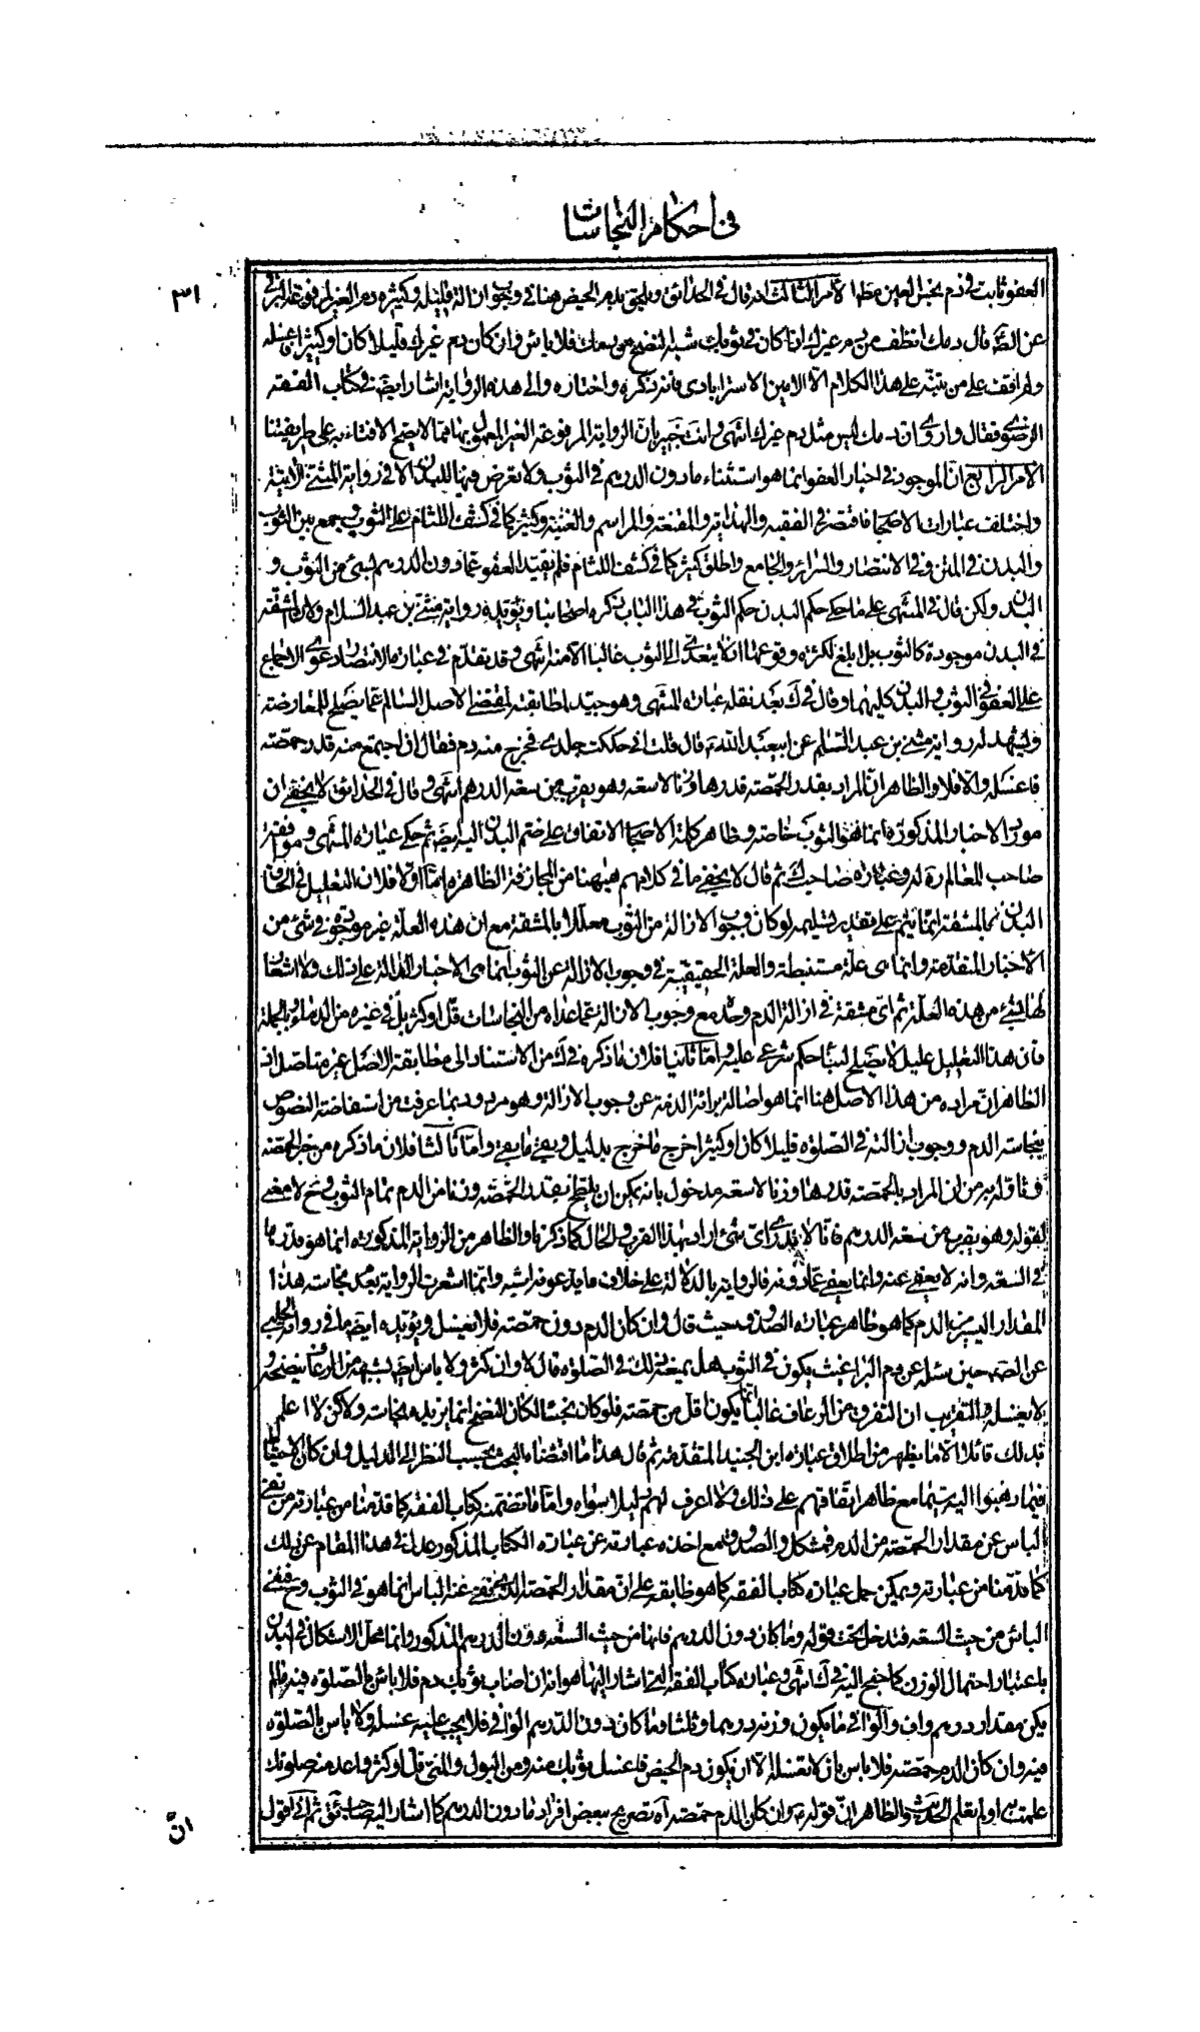 في احكام النجاسات
٣١
العفو ثابت في دم نجس العين مطلقا الأمر الثالث انه قال في الحدائق ويلحق بدم الحيض هنا في وجوب ازالة قليله وكثيره دم الغير لمرفوعة البرقي
عن الصّ قال دمك انظف من دم غيرك اذا كان في ثوبك شبه النضح من دمك فلا بأس وان كان دم غيرك قليلا كان او كثيرا فاغسله
ولم اقف على من تنبّه على هذا الكلام الّا الامين الاسترابادي فانه ذكره واختاره والى هذه الرواية اشار ايضا في كتاب الفقه
الرضوي فقال واروى ان دمك ليس مثل دم غيرك انتهى وانت خبير بانّ الرواية المرفوعة الغير المعمول بها مما لا يصح الافتاء به على طريقتنا
الأمر الرابع انّ الموجود في اخبار العفو انما هو استثناء ما دون الدرهم في الثوب ولا تعرض فيها للبدن الا في رواية المثنى الآتية
واختلف عبارات الاصحاب فاقتصر في الفقيه والهداية والمقنعة والمراسم والغنية وكثير كما في كشف اللثام على الثوب وجمع بين الثوب
والبدن في المتن وفي الانتصار والسرائر والجامع واطلق كثير كما في كشف اللثام فلم يقيّد العفو عما دون الدرهم بشيء من الثوب و
البدن ولكن قال في المنتهى على ما حكى حكم البدن حكم الثوب في هذا الباب ذكره اصحابنا ويؤيده رواية مثنى بن عبد السلام ولان المشقة
في البدن موجودة كالثوب بل ابلغ لكثرة وقوعها اذ لا يتعدى الى الثوب غالبا الا منه انتهى وقد تقدّم في عبارة الانتصار دعوى الاجماع
على العفو في الثوب والبدن كليهما وقال في ك بعد نقله عبارة المنتهى وهو جيّد لمطابقته لمقتضى الاصل السالم عمّا يصلح للمعارضة
ويشهد له رواية مثنى بن عبد السّلم عن ابيعبد الله ع قال قلت اني حككت جلدي فخرج منه دم فقال ان اجتمع منه قدر حمّصة
فاغسله والا فلا والظاهر انّ المراد بقدر الحمّصة قدرها وزنا لا سعة وهو يقرب من سعة الدرهم انتهى وقال في الحدائق لا يخفى ان
مورد الاخبار المذكورة انما هو الثوب خاصة وظاهر كلمة الاصحاب الاتفاق على ضم البدن اليه ايضا ثم حكى عبارة المنتهى وموافقة
صاحب المعالم ره له وعبارة صاحب ك ثم قال لا يخفى ما في كلامهم هيهنا من المجازفة الظاهرة امّا اوّلا فلان التعليل في الحاق
البدن بالمشقة انما يتم على تقدير تسليمه لو كان وجوب الازالة من الثوب معللا بالمشقة مع ان هذه العلّة غير موجودة في شيء من
الأخبار المتقدّمة وانما هي علّة مستنبطة والعلة الحقيقية في وجوب الازالة عن الثوب انما هي الاخبار الدالة على ذلك ولا اشعار
لها بشيء من هذه العلّة ثم اي مشقة في ازالة الدم وحده مع وجوب الازالة عمّا عداه من النجاسات قلّ او كثر بل في غيره من الدماء وبالجملة
فان هذا التعليل عليل لا يصلح لبناء حكم شرعي عليه وامّا ثانيا فلان ما ذكره في ك من الاستناد الى مطابقة الاصل غير متاصل اذ
الظاهر ان مراده من هذا الاصل هنا انما هو اصالة براءة الذمة عن وجوب الازالة وهو مردود بما عرفت من استفاضة النصوص
بنجاسة الدم ووجوب ازالته في الصلوة قليلا كان او كثيرا خرج ما خرج بدليل وبقي ما بقي وامّا ثالثا فلان ما ذكره من خبر الحمّصة
وما قاله من ان المراد بالحمّصة قدرها وزنا لا سعة مدخول بانه يمكن ان يلطخ بقدر الحمّصة وزنا من الدم تمام الثوب وح لا معنى
لقوله وهو يقرب من سعة الدرهم فانّا لا ندري اي شيء اراد بهذا القرب والحال كما ذكرنا والظاهر من الرواية المذكورة انما هو قدرها
في السّعة وانه لا يعفى عنه وانما يعفى عمّا دونه فالرواية بالدلالة على خلاف ما يدعونه اشبه وانما اشعرت الرواية بعدم نجاسة هذا
المقدار اليسير من الدم كما هو ظاهر عبارة الصدوق حيث قال وان كان الدم دون حمّصة فلا يغسل ويؤيده ايضا ما في رواية الحلبي
عن الصّ حين سئله عن دم البراغيث يكون في الثوب هل يمنعه ذلك في الصلوة قال لا وان كثر ولا باس ايضا بشبهه من الرعاف ينضحه و
لا يغسله والتقريب ان التفرق من الرعاف غالبا انما يكون اقل من حمّصة فلو كان نجسا لكان النضح انما يزيده نجاسة ولا كن لا اعلم
بذلك قائلا الا ما يظهر من اطلاق عبارة ابن الجنيد المتقدمة ثم قال هذا ما اقتضاه البحث بحسب النظر الى الدليل وان كان الاحتياط
فيما ذهبوا اليه سيّما مع ظاهر اتفاقهم على ذلك ولا اعرف لهم دليلا سواه وامّا ما تضمنه كتاب الفقه كما قدّمنا من عبارته من نفي
الباس عن مقدار الحمّصة من الدم فمشكل والصدوق مع اخذه عبارته عن عبارة الكتاب المذكور عدل في هذا المقام عن ذلك
كما قدّمنا من عبارته ويمكن حمل عبارة كتاب الفقه كما هو ظ بقرينة على ان مقدار الحمّصة الذي نفى عنه الباس انما هو في الثوب وح فنفي
الباس من حيث السعة فتدخل تحت قوله وما كان دون الدرهم فانها من حيث السّعة دون الدرهم المذكور وانما محل الاشكال في البدن
باعتبار احتمال الوزن كما جنح اليه في ك انتهى وعبارة كتاب الفقه التي اشار اليها هو انه ان اصاب ثوبك دم فلا باس بالصلوة فيه ما لم
يكن مقدار درهم واف والوافي ما يكون وزنه درهما وثلثا وما كان دون الدّرهم الوافي فلا يجب عليه غسله ولا باس بالصّلوة
فيه وان كان الدم حمّصة فلا باس بان لا تغسله الّا ان يكون دم الحيض فاغسل ثوبك منه ومن البول والمنيّ قلّ او كثر واعد منه صلوتك
علمت به او لم تعلم الحديث والظاهر انّ قوله ع وان كان الدم حمّصة آه تصريح ببعض افراد ما دون الدرهم كما اشار اليه صاحب ئق ثم اني اقول
انّ